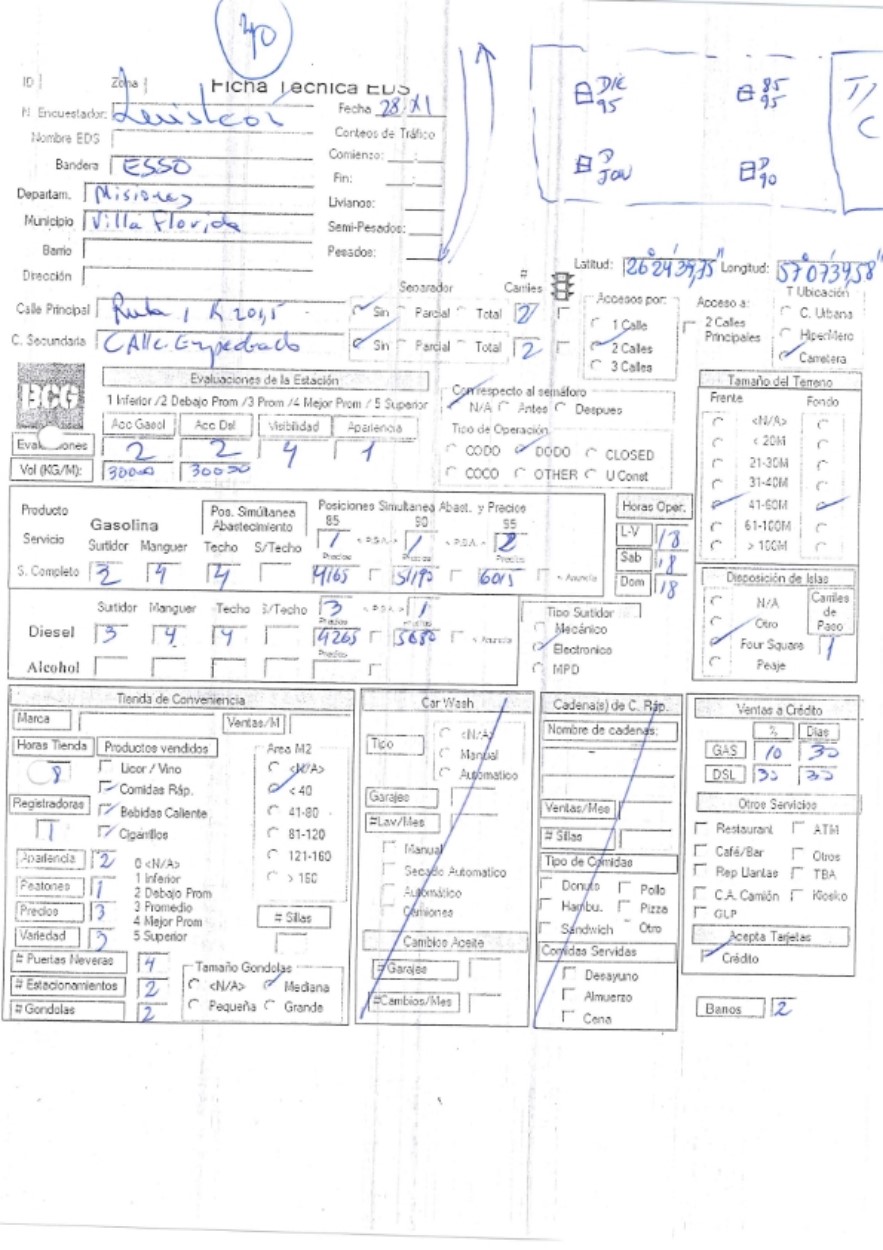 40
ID Zona Ficha Tecnica EDS
DIE 95
85 95
T/
C
N. Encuestador: Luis Leon Fecha 28/XI
Nombre EDS Conteos de Tráfico
D JON
D 90
Bandera ESSO Comienzo: __:__
Fin: __:__
Departam. Misiones Livianos:
Municipio Villa Florida Semi-Pesados:
Barrio Pesados:
Dirección
Latitud: 26° 24' 39,75" Longitud: 57° 07' 34,58"
Separador # Carriles Accesos por: Acceso a: T Ubicación
Calle Principal Ruta 1 K 201,5 Sin Parcial Total 2 1 Calle 2 Calles Principales C. Urbana
C. Secundaria CAlle. Empedrado Sin Parcial Total 2 2 Calles HiperMero
3 Calles Carretera
BCG
Evaluaciones de la Estación
1 Inferior /2 Debajo Prom /3 Prom /4 Mejor Prom / 5 Superior
Con respecto al semáforo
N/A Antes Despues
Acc Gasol Acc Dsl Visibilidad Apariencia
Evaluaciones 2 2 4 1
Vol (KG/M): 30000 30000
Tipo de Operación
CODO DODO CLOSED
COCO OTHER U Const
Tamaño del Terreno
Frente Fondo
<N/A>
< 20M
21-30M
31-40M
41-60M
61-100M
> 100M
Producto Gasolina Pos. Simúltanea Abastecimiento Posiciones Simultanea Abast. y Precios
85 90 95
Servicio Surtidor Manguer Techo S/Techo 1 < P.S.A. > 1 < P.S.A. > 2
Precios Precios
S. Completo 3 4 4 4165 5190 6015 < Anuncia
Horas Oper.
L-V 18
Sab 18
Dom 18
Surtidor Manguer Techo S/Techo 3 < P.S.A. > 1
Precios
Diesel 3 4 4 4265 5680 < Anuncia
Precios
Alcohol
Tipo Surtidor
Mecánico
Electronico
MPD
Disposición de Islas
N/A Carriles de Paso
Otro
Four Square 1
Peaje
Tienda de Conveniencia
Marca Ventas/M
Horas Tienda Productos vendidos Area M2
8 Licor / Vino <N/A>
Comidas Ráp. < 40
Registradoras Bebidas Caliente 41-80
1 Cigarrillos 81-120
Apariencia 2 0 <N/A> 121-160
Peatones 1 1 Inferior > 160
2 Debajo Prom
Precios 3 3 Promedio
4 Mejor Prom # Sillas
Variedad 3 5 Superior
# Puertas Neveras 4 Tamaño Gondolas
# Estacionamientos 2 <N/A> Mediana
# Gondolas 2 Pequeña Grande
Car Wash
Tipo <N/A>
Manual
Automatico
Garajes
#Lav/Mes
Manual
Secado Automatico
Automático
Camiones
Cambios Aceite
# Garajes
#Cambios/Mes
Cadena(s) de C. Ráp.
Nombre de cadenas:
Ventas/Mes
# Sillas
Tipo de Comidas
Donuts Pollo
Hambu. Pizza
Sandwich Otro
Comidas Servidas
Desayuno
Almuerzo
Cena
Ventas a Crédito
% Dias
GAS 10 30
DSL 30 30
Otros Servicios
Restaurant ATM
Café/Bar Otros
Rep Llantas TBA
C.A. Camión Kiosko
GLP
Acepta Tarjetas
Crédito
Banos 2